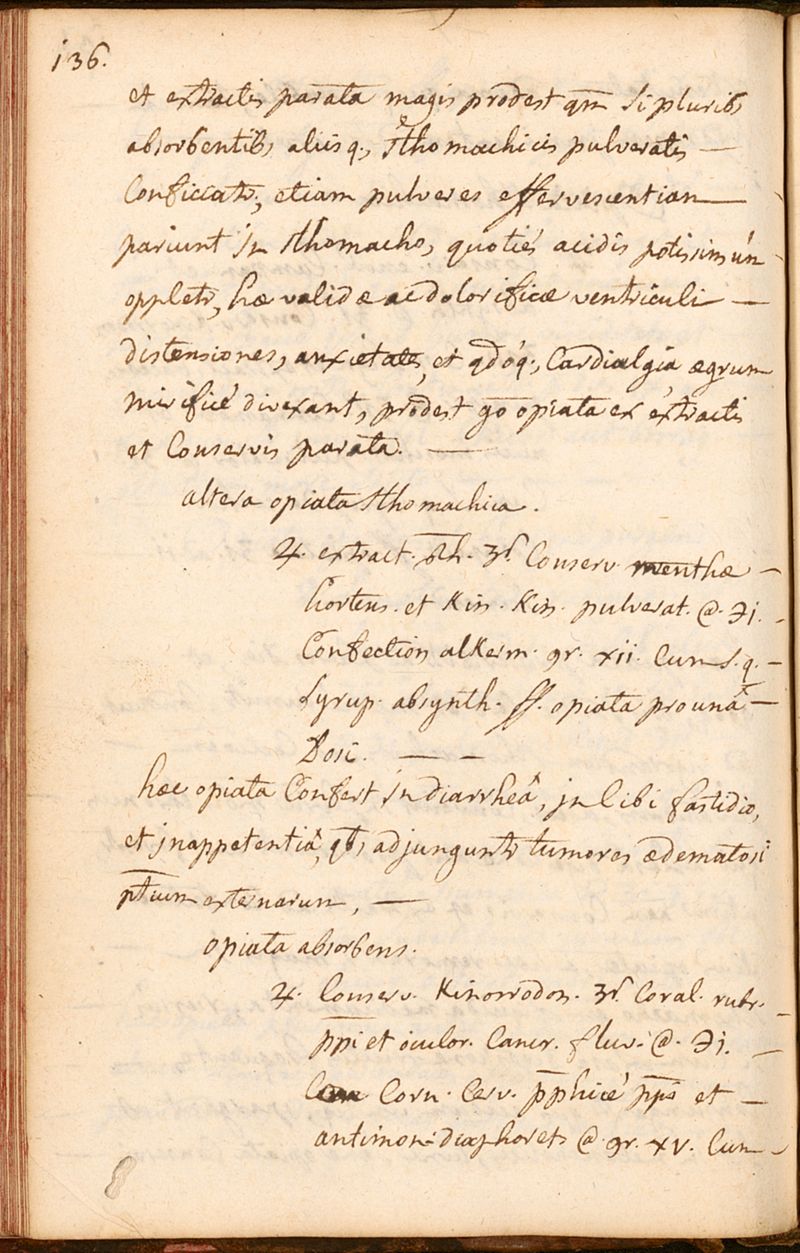 136.
et extractis parata magis prodest qm̅ si plurib9
absorbentib9 aliisq; sthomachicis pulveratis —
Conficeatr; etiam pulveres effervescentiam —
pariunt in sthomacho, quotiés acidis potissimún
oppletr, hæ validæ ac dolorificæ ventriculi —
distensiones, anxietates, et qdóq; Cardialgia ægrum
mirificé divexant, prodest go opiata ex extractis
et Conservis parata. —
altera opiata sthomachica.
♃. extract. Rh. ʒſ Conserv. menthæ —
hortens. et Kin. Kin. pulverat. @. ℈j. -
Confection alKerm. gr. xii. Cum s. q. —
Syrup. absynth. ff. opiata pro unâ —
Dosi. — —
hæc opiata Confert in diarrheâ, in Cibi fastidio,
et jnappetentiâ, qb9 adjunguntr tumores ædematosi
ptium externarum, —
opiata absorbens.
♃. Conserv. Kinorrodon. ʒſ. Coral. rubr. -
ppi et óculor. Cancr. fluv. @. ℈j. —
Corn. Cerv. pphicé pps et —
antimon. diaphoret @. gr. xv. Cum -